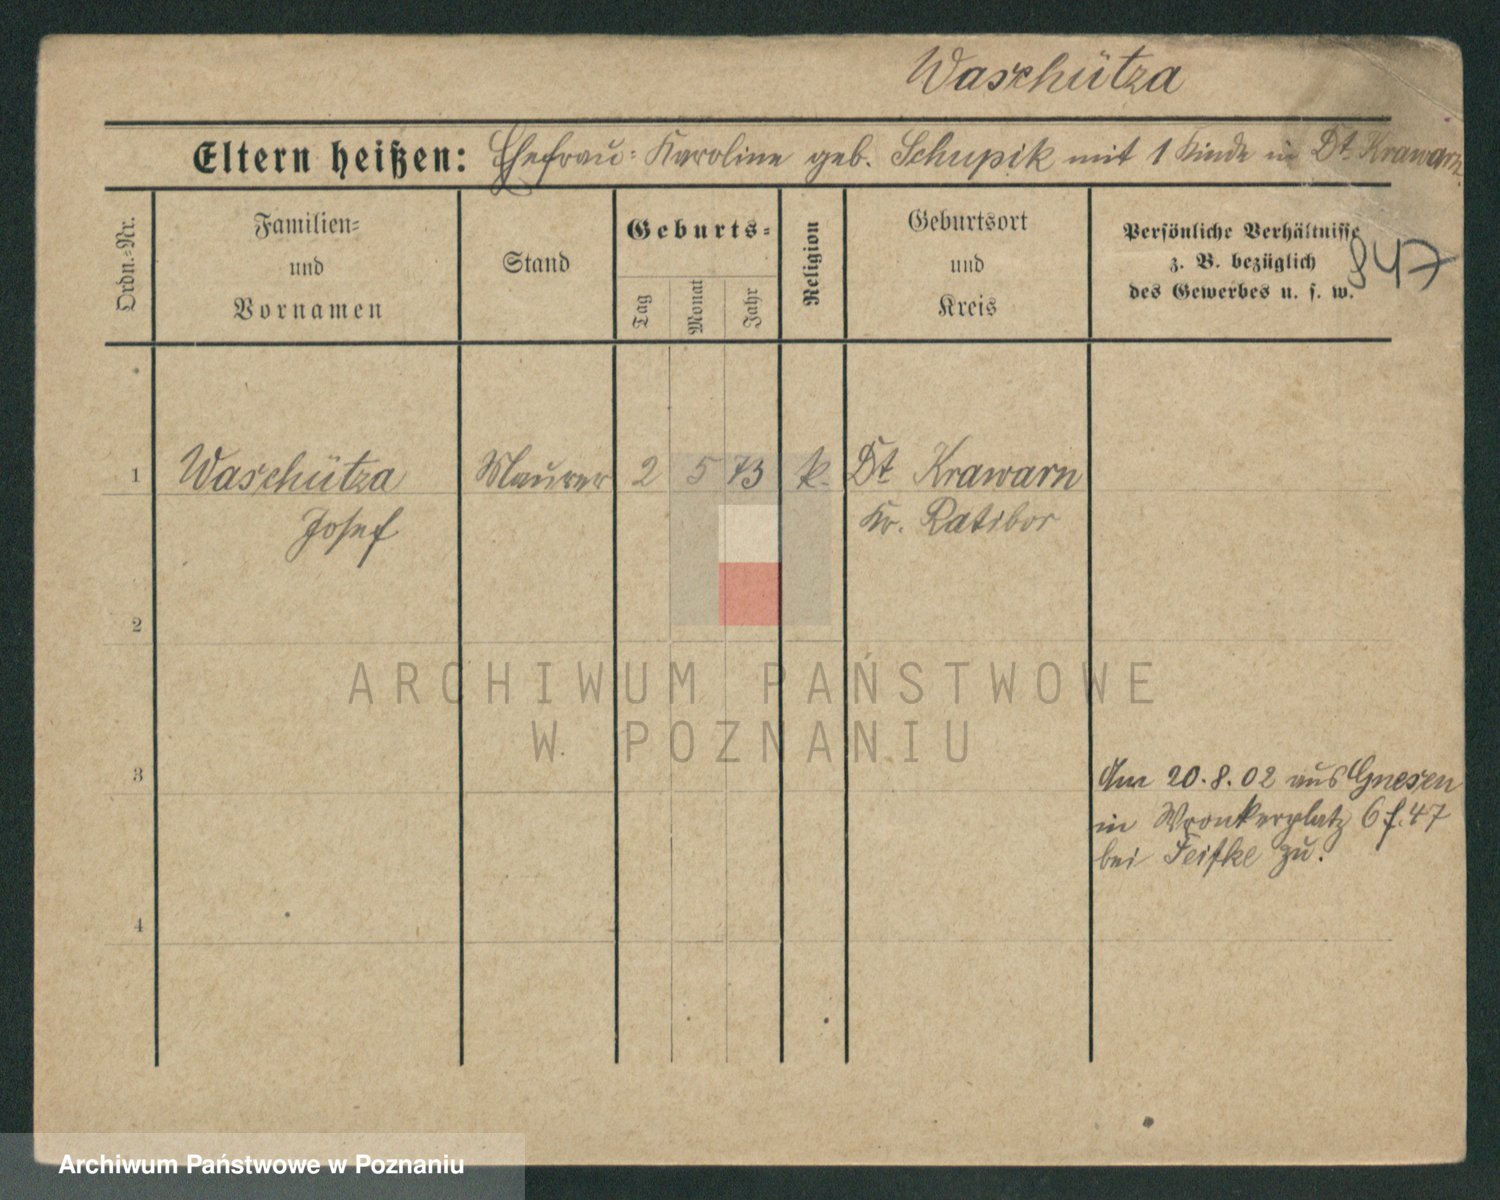 Waschütza
Eltern heißen: Ehefrau: Karoline geb. Schupik mit 1 Kinde in Dt. Krawarn.
Ordn.=Nr.
Familien=
und
Vornamen
Stand
Geburts=
Tag
Monat
Jahr
Religion
Geburtsort
und
Kreis
Persönliche Verhältnisse
z. B. bezüglich
des Gewerbes u. s. w.
847
1 Waschütza Maurer 2 5 73 k. Dt Krawarn
Josef Kr. Ratibor
2
ARCHIWUM PAŃSTWOWE
W POZNANIU
3
Am 20.8.02 aus Gnesen
in Wronkerplatz 6 f. 47
bei zu.
4
Archiwum Państwowe w Poznaniu